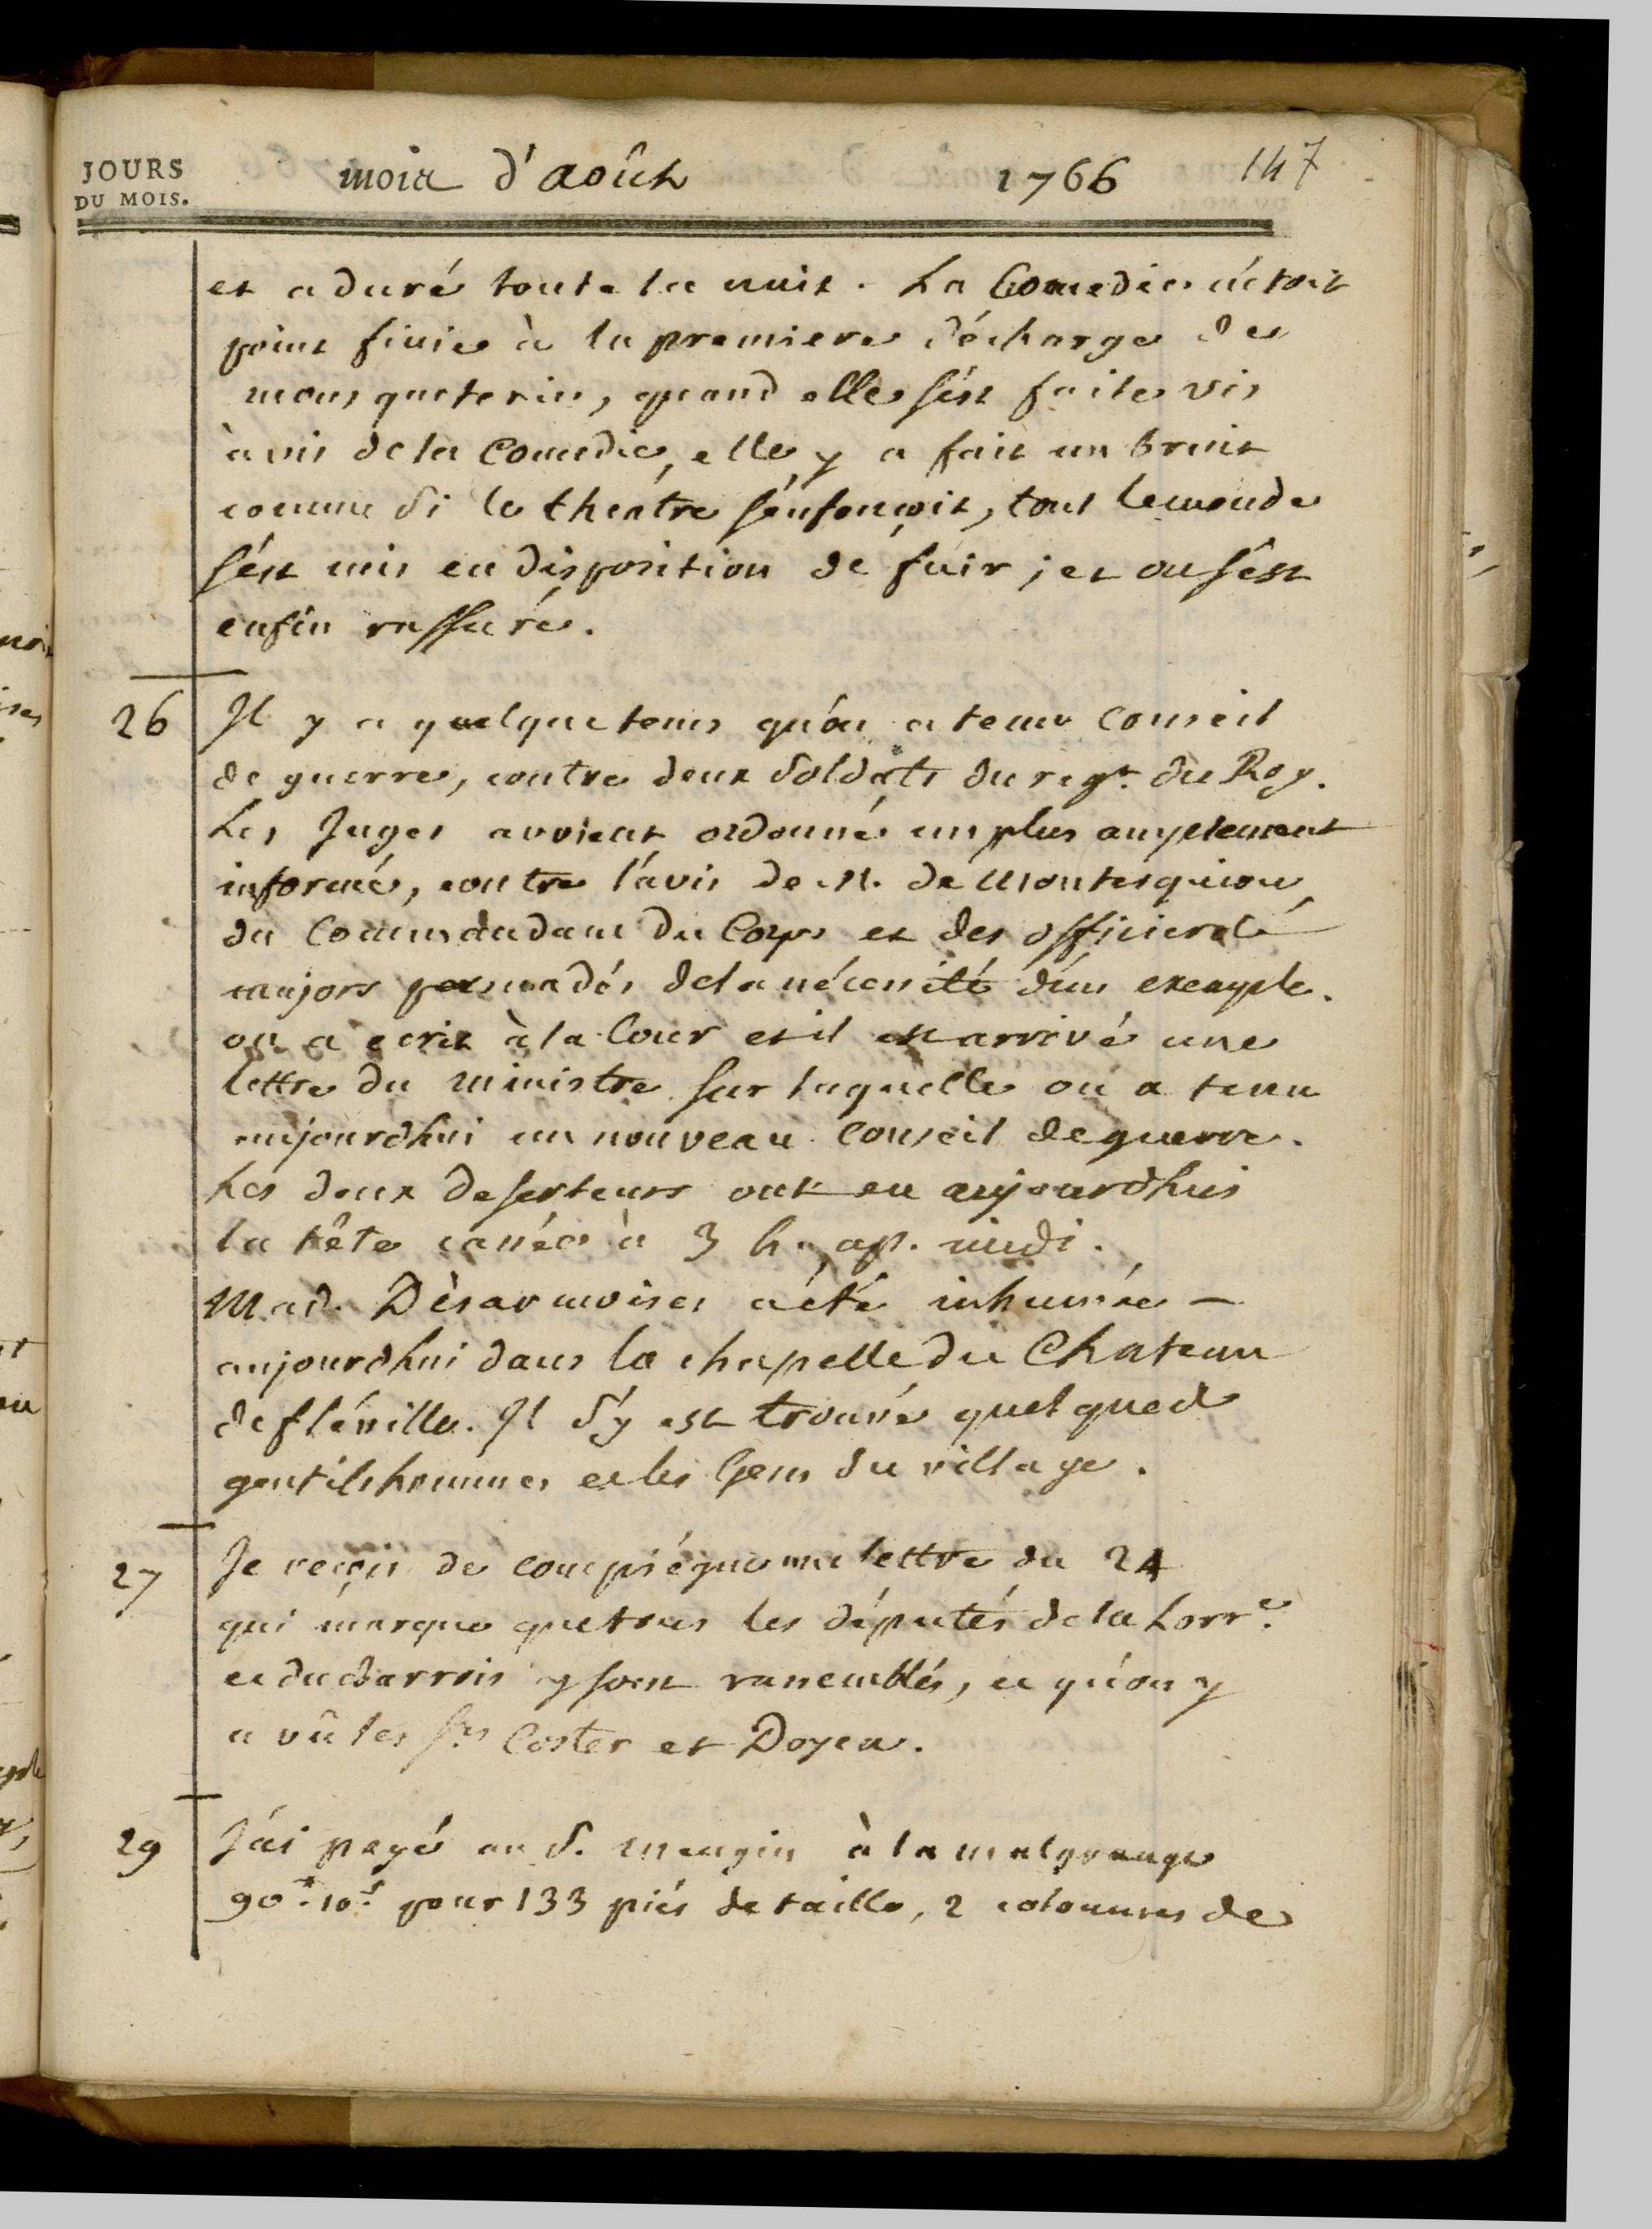 JOURS
DU MOIS.
mois d'août 1766 147
et a duré toute la nuit. La Comedie n'étoit
point finie à la premiere décharge de
mousqueterie, quand elle s'est faite vis
à vis de la Comedie, elle y a fait un bruit
comme si le théatre s'enfonçoit, tout le monde
s'est mis en disposition de fuir; et on s'est
enfin rassuré.
26 Il y a quelque tems qu'on a tenu conseil
de guerre, contre deux soldats du regt. du Roy.
Les Juges avoient ordonné un plus amplement
informé, contre l'avis de M. de Montesquiou
du Commandant du Corps et des officiers
majors persuadés de la nécessité d'un exemple.
on a ecrit à la Cour et il est arrivé une
lettre du ministre sur laquelle on a tenu
aujourdhui un nouveau conseil de guerre.
Les deux deserteurs ont eu aujourdhui
la tête cassée à 3 h. ap. midi.
Mad. Dèsarmoises a été inhumée —
aujourdhui dans la chapelle du Chateau
de fléville. Il s'y est trouvé quelques
gentilshommes et les Gens du village.
27 Je reçois de compiégne une lettre du 24
qui marque que tous les députés de la Lorr.e
et du Barrois y sont rassemblés, et qu'on y
a vû les Srs Coster et Doyen.
29 J'ai payé au S. Mengin à la malgrange
90 10s pour 133 piés de taille, 2 colonnes de